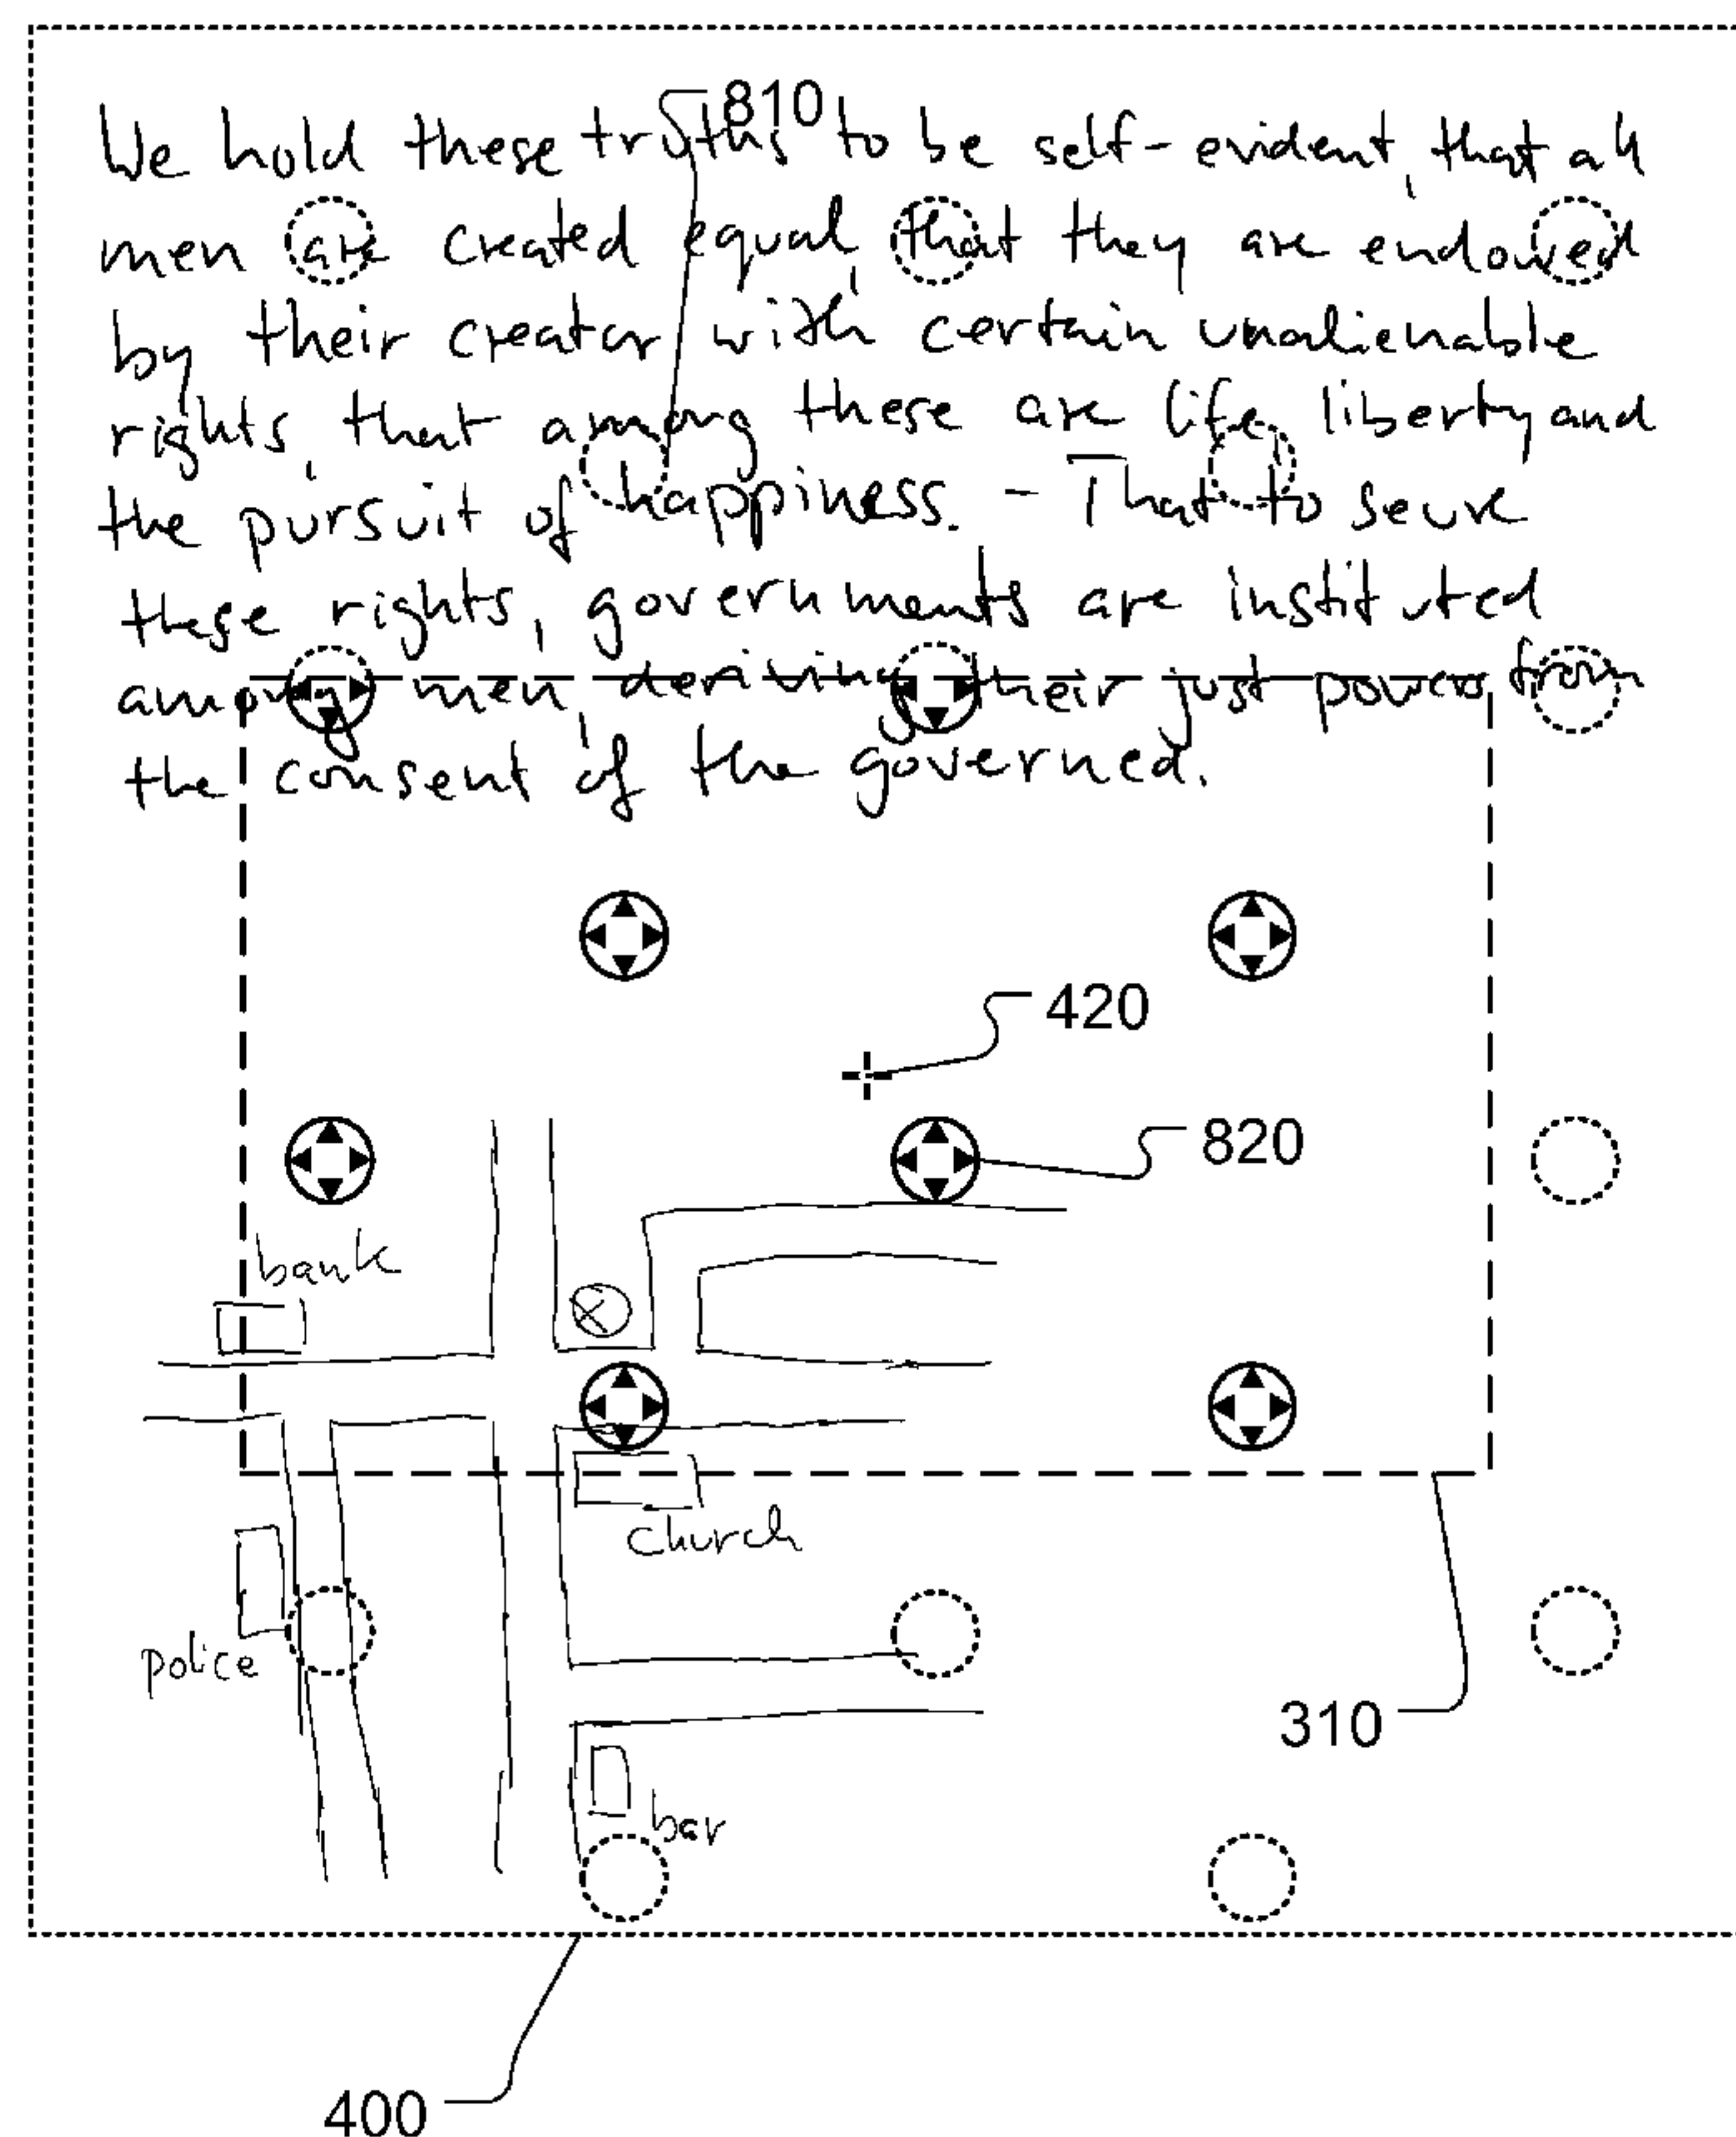 810
We hold these truths to be self-evident, that all
men are created equal, that they are endowed
by their creator with certain unalienable
rights, that among these are life, liberty and
the pursuit of happiness. - That to secure
these rights, governments are instituted
among men, deriving their just powers from
the consent of the governed.
420
820
bank
church
police
310
bar
400